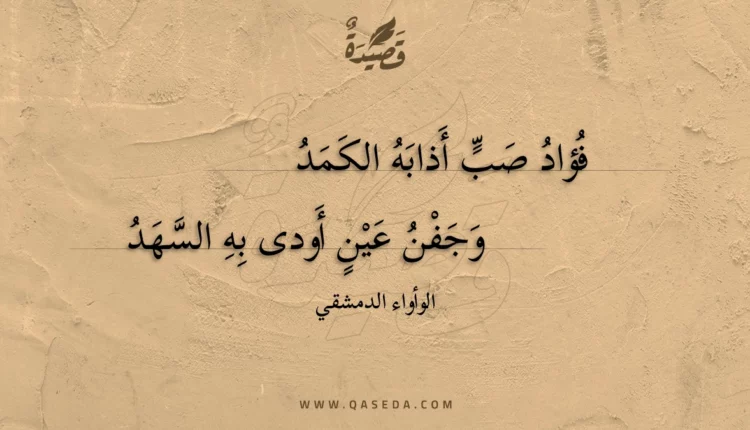 قَصِيدَةٌ
فُؤادُ صَبٍّ أَذابَهُ الكَمَدُ
وَجَفْنُ عَيْنٍ أَودى بِهِ السَّهَدُ
الوأواء الدمشقي
WWW.QASEDA.COM